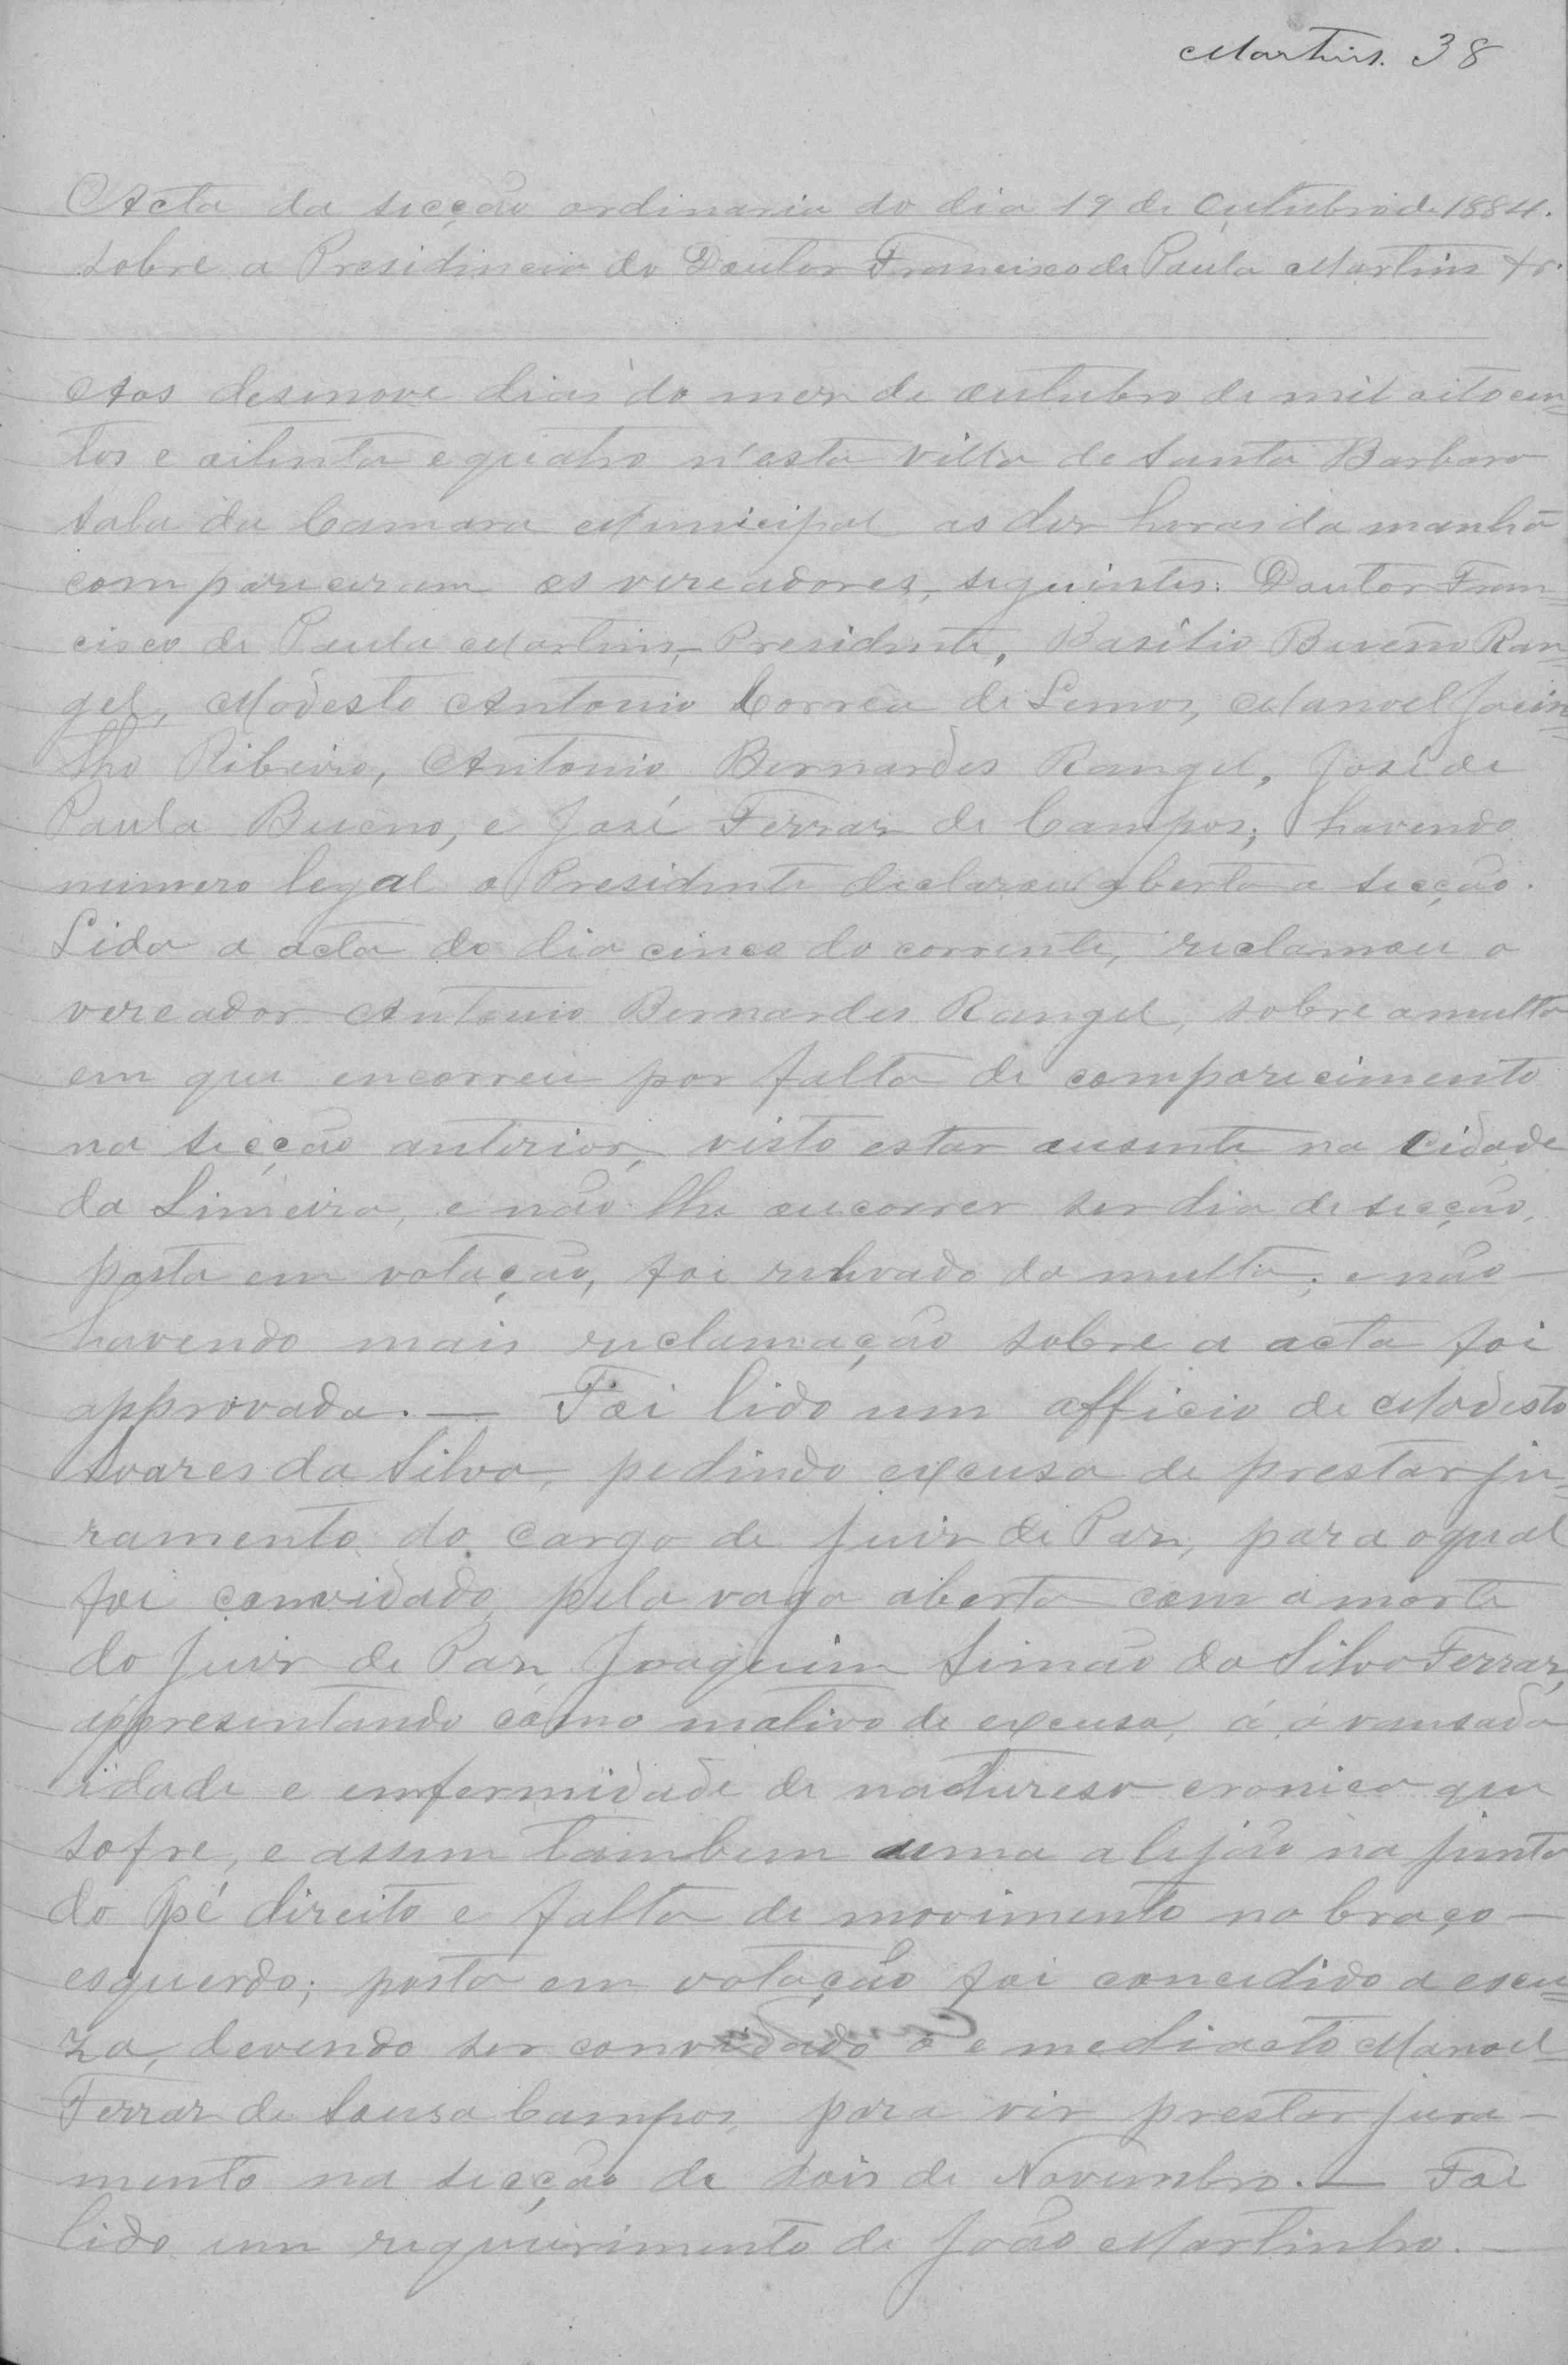 Martins. 38
Acta da secção ordinaria do dia 19 de Outubro de 1884.
sobre a Presidincia do Doutor Francisco de Paula Martins
Aos desenove dias do mez de outubro de mil oitocen=
tos e oitenta e quatro n'esta villa de Santa Barbara
sala da Camara Municipal as dez horas da manhã
compareceram os vereadores, seguintes: Doutor Fran=
cisco de Paula Martins, Presidente, Basilio Bueno Ran=
gel, Modesto Antonio Corrêa de Lemos, Manoel Jacin=
tho Ribeiro, Antonio Bernardes Rangel, José de
Paula Bueno, e José Ferraz de Campos; havendo
numero legal o Presidente declarou aberta a secção.
Lida a acta do dia cinco do corrente, reclamou o
vereador Antonio Bernardes Rangel, sobre a multa
em que encorreu por falta de comparecimento
na secção anterior, visto estar ausente na Cidade
da Limeira, e não lhe oucorrer ser dia de secção,
posta em votação, foi relevado da multa; e não
havendo mais reclamação sobre a acta foi
approvada. — Foi lido um officio de Modesto
Soares da Silva, pedindo excusa de prestar ju=
ramento do cargo de Juiz de Paz, para o qual
foi convidado pela vaga aberta com a morte
do Juiz de Paz Joaquim Simão da Silva Ferraz,
appresentando como motivo de excusa, á avansada
idade e emfermidade de natureso cronica que
sofre, e assim tambem uma alejão na junta
do pé direito e falta de movimento no braço —
esquerdo; posta em votação foi concedido a escu=
za, devendo ser convidado o emediacto Manoel
Ferraz de Sousa Campos, para vir prestar jura—
mento na secção de dois de Novembro. — Foi
lido um requirimento de João Martinho. —